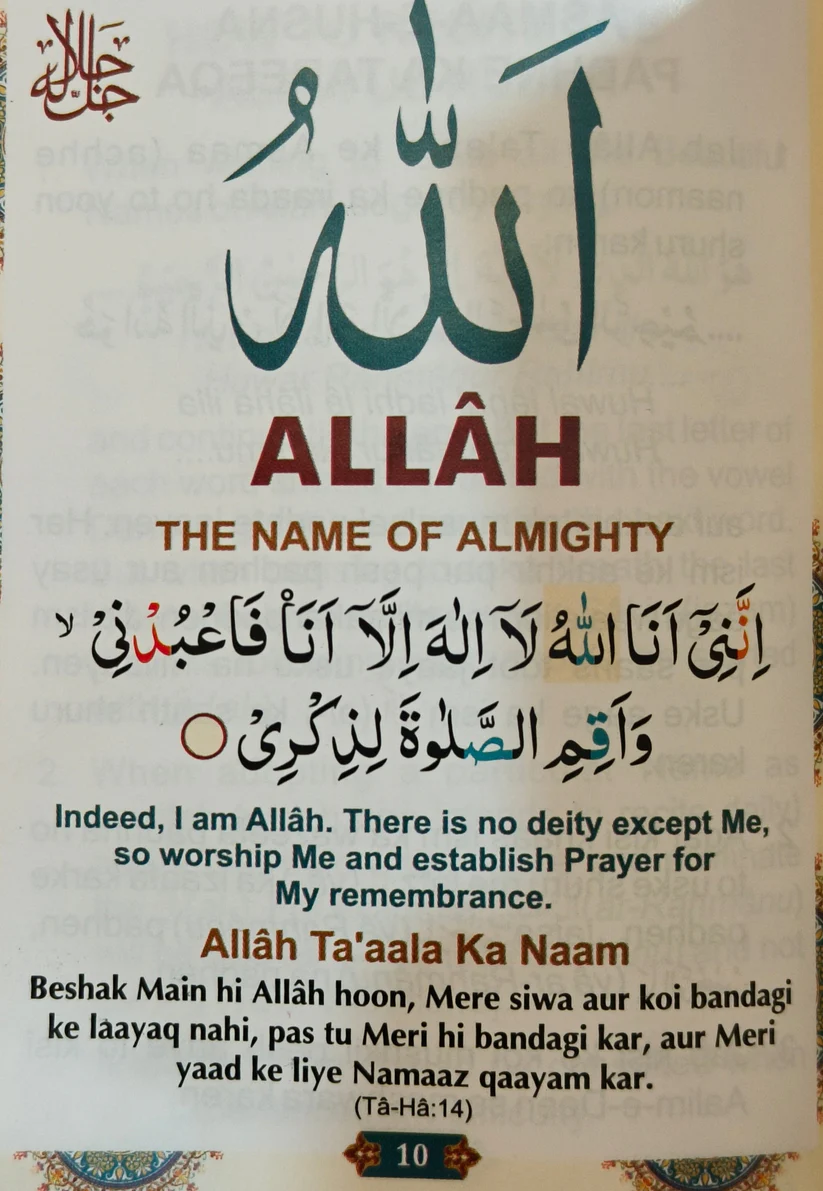 جل جلاله
اللهُ
ALLÂH
THE NAME OF ALMIGHTY
اِنَّنِیْۤ اَنَا اللهُ لَاۤ اِلٰهَ اِلَّاۤ اَنَا۠ فَاعْبُدْنِیْ ۙ
وَاَقِمِ الصَّلٰوةَ لِذِكْرِیْ ○
Indeed, I am Allâh. There is no deity except Me,
so worship Me and establish Prayer for
My remembrance.
Allâh Ta'aala Ka Naam
Beshak Main hi Allâh hoon, Mere siwa aur koi bandagi
ke laayaq nahi, pas tu Meri hi bandagi kar, aur Meri
yaad ke liye Namaaz qaayam kar.
(Tâ-Hâ:14)
10